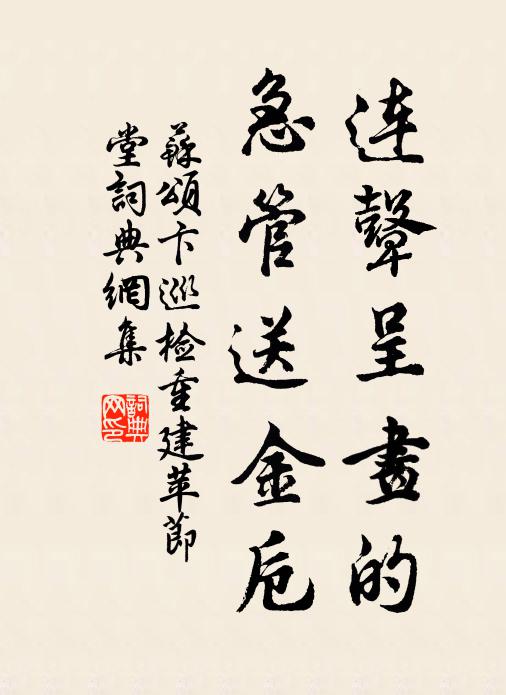 連鼙呈畫的
急管送金卮
蘇頌卞巡檢重建苹節
堂詞典網集
詞典网印